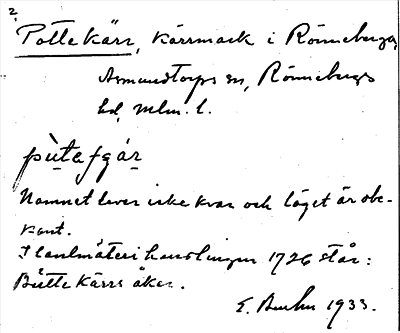 ?
Pottekärr, kärrmark i Rönneberga,
Asmundtorps sn, Rönnebergs
hd, Mlm. l.
pùtafgár
Namnet lever icke kvar och läget är obe-
kant.
I lantmäterihandlingar 1726 står:
Bütte Kärrs åker.
E. 1933.